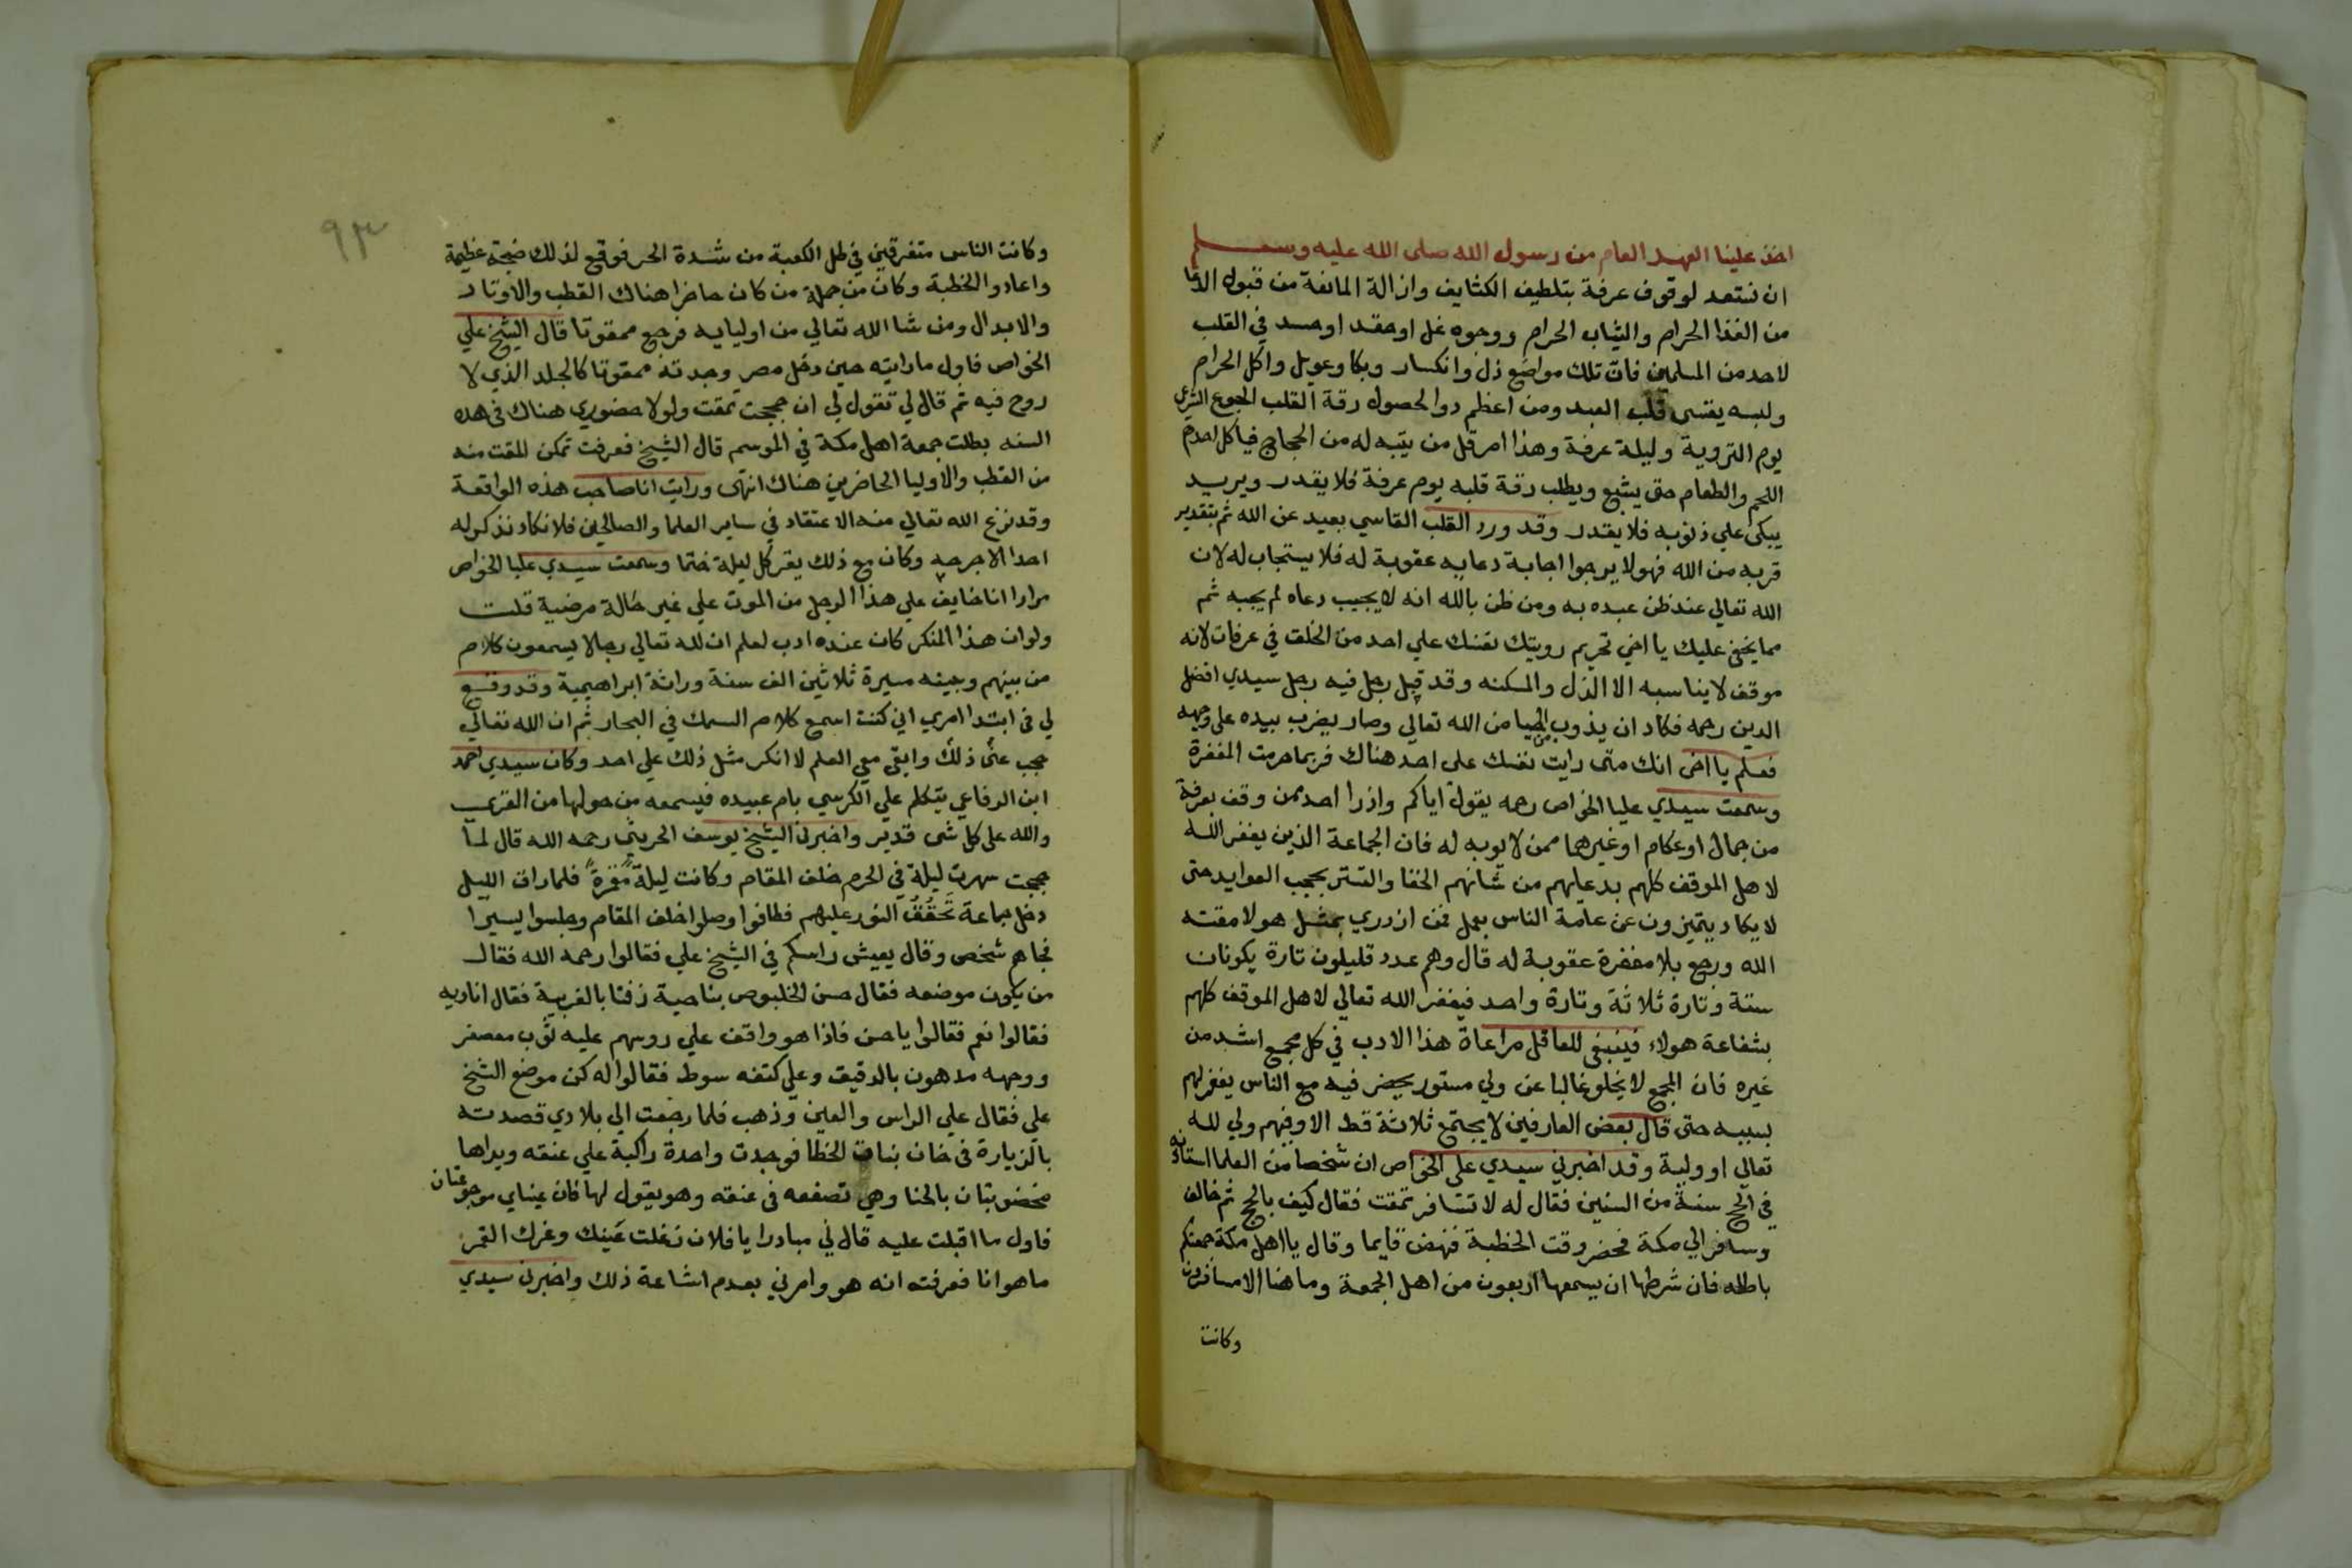 اخذ علينا العهد العام من رسول الله صلى الله عليه وسلم
ان نستعد لوقوف عرفة بتلطيف الكثايف وازالة المانعة من قبول الدعا
من الغذا الحرام والثياب الحرام ووجود غل او حقد او حسد في القلب
لاحد من المسلمين فان تلك مواضع ذل وانكسار وبكا وعويل واكل الحرام
ولبسه يقسى قلب العبد ومن اعظم دوا لحصول رقة القلب الجوع الشرعي
يوم التروية وليلة عرفة وهذا امر قل من يتنبه له من الحجاج فياكل احدهم
اللحم والطعام حتى يشبع ويطلب رقة قلبه يوم عرفة فلا يقدر ويريد
يبكى علي ذنوبه فلا يقدر وقد ورد القلب القاسي بعيد عن الله ثم بتقدير
قربه من الله فهو لا يرجوا اجابة دعايه عقوبة له فلا يستجاب له لان
الله تعالي عند ظن عبده به ومن ظن بالله انه لا يجيب دعاه لم يجبه ثم
مما يخفى عليك يا اخي تحريم رويتك نفسك علي احد من الخلق في عرفات لانه
موقف لا يناسبه الا الذل والمسكنه وقد قبل رجل فيه رجل سيدي افضل
الدين رحمه فكاد ان يذوب من الحيا من الله تعالي وصار يضرب بيده على وجهه
فعلم يا اخى انك متى رايت نفسك على احد هناك فربما حرمت المغفرة
وسمعت سيدي عليا الخواص رحمه يقول اياكم وازدرا احد ممن وقف بعرفة
من جمال او عكام او غيرهما ممن لا يوبه له فان الجماعة الذين يغفر الله
لاهل الموقف كلهم بدعايهم من شانهم الخفا والتستر بحجب العوايد حتى
لا يكاد يتميزون عن عامة الناس بعمل فمن ازدري بمثل هولا مقته
الله ورجع بلا مغفرة عقوبة له قال وهم عدد قليلون تارة يكونان
ستة وتارة ثلاثة وتارة واحد فيغفر الله تعالي لاهل الموقف كلهم
بشفاعة هولاء فينبغى للعاقل مراعاة هذا الادب في كل مجمع اشد من
غيره فان المجمع لا يخلو غالبا عن ولي مستور يحضر فيه مع الناس يغفر لهم
بسببه حتى قال بعض العارفين لا يجتمع ثلاثة قط الا وفيهم ولي لله
تعالي او ولية وقد اخبرني سيدي على الخواص ان شخصا من العلما استاذنه
في الحج سنة من السنين فقال له لا تسافر تمقت فقال كيف بالحج ثم خالف
وسافر الي مكة فحضر وقت الخطبة فنهض قايما وقال يا اهل مكة جمعتكم
باطله فان شرطها ان يسمعها اربعون من اهل الجمعة وما هنا الا مسافرون
وكانت
٩٣
وكانت الناس متفرقين في ظل الكعبة من شدة الحر فوقع لذلك ضجة عظيمة
واعادوا الخطبة وكان من جملة من كان حاضرا هناك القطب والاوتاد
والابدال ومن شا الله تعالي من اوليايه فرجع ممقوتا قال الشيخ علي
الخواص فاول ما رايته حين دخل مصر وجدته ممقوتا كالجلد الذي لا
روح فيه ثم قال لي تقول لي ان حججت تمقت ولولا حضوري هناك في هذه
السنه بطلت جمعة اهل مكة في الموسم قال الشيخ فعرفت تمكن المقت منه
من القطب والاوليا الحاضرين هناك انتهى ورايت انا صاحب هذه الواقعة
وقد نزع الله تعالي منه الاعتقاد في ساير العلما والصالحين فلا نكاد نذكر له
احدا الا جرحه وكان مع ذلك يقر كل ليلة ختما وسمعت سيدي عليا الخواص
مرارا انا خايف علي هذا الرجل من الموت علي غير حالة مرضية قلت
ولو ان هذا المنكر كان عنده ادب لعلم ان لله تعالي رجالا يسمعون كلام
من بينهم وبينه مسيرة ثلاثين الف سنة وراثة ابراهيمية وقد وقع
لي في ابتدا امري اني كنت اسمع كلام السمك في البحار ثم ان الله تعالي
حجب عني ذلك وابقى معي العلم لا انكر مثل ذلك علي احد وكان سيدي احمد
ابن الرفاعي يتكلم علي الكرسي بام عبيده فيسمعه من حولها من القري
والله على كل شى قدير واخبرني الشيخ يوسف الحريثي رحمه الله قال لما
حججت سهرت ليلة في الحرم خلف المقام وكانت ليلة مقمرة فلما راق الليل
دخل جماعة تخفق النور عليهم فطافوا وصلوا خلف المقام وجلسوا يسيرا
فجاهم شخص وقال يعيش راسكم في الشيخ علي فقالوا رحمه الله فقال
من يكون موضعه فقال حسن الخلبوص بناحية زفتا بالغربية فقال اناديه
فقالوا نعم فقالوا يا حسن فاذا هو واقف علي روسهم عليه ثوب معصفر
ووجهه مدهون بالدقيق وعلي كتفه سوط فقالوا له كن موضع الشيخ
علي فقال علي الراس والعين وذهب فلما رجعت الي بلادي قصدته
بالزيارة في خان بنات الخطا فوجدت واحدة راكبة علي عنقه ويداها
مخضوبتان بالحنا وهي تصفعه في عنقه وهو يقول لها فان عيناي موجوعتان
فاول ما اقبلت عليه قال لي مبادرا يا فلان زغلت عينك وغرك القمر
ما هو انا فعرفته انه هو وامرني بعدم اشاعة ذلك واخبرني سيدي